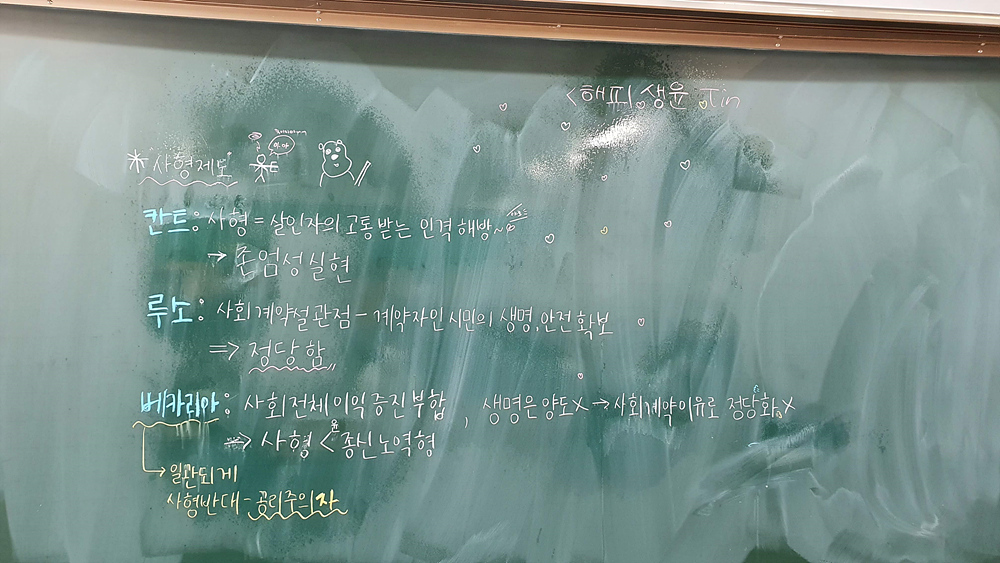 <해피 생윤 Tin
*사형제도
칸트: 사형 = 살인자의 고통 받는 인격 해방~
→ 존엄성 실현
루소: 사회 계약설 관점 - 계약자인 시민의 생명, 안전 확보
=> 정당함
베카리아: 사회 전체 이익 증진 부합, 생명은 양도X → 사회계약 이유로 정당화X
=> 사형 < 종신노역형
→ 일관되게
사형반대 - 공리주의자